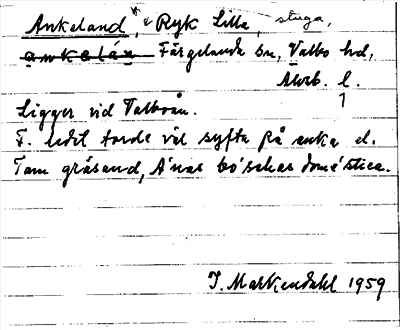 Ankeland, Ryk Lilla, stuga,
ankelán Färgelanda sn, Valbo hd,
Älvsb. l.
Ligger vid Valboån.
F. ledet torde väl syfta på anka el.
Tam gräsand, A'nas bo'schas dome'stica.
T. Markendahl 1959